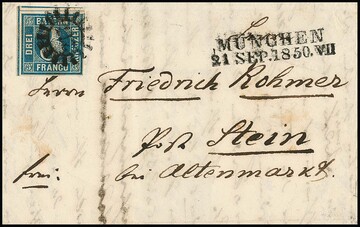 DREI
FRANCO
MÜNCHEN
21 SEP. 1850. VII
Herrn Friedrich Rohmer
Post Stein
frei. bei Altenmarkt.